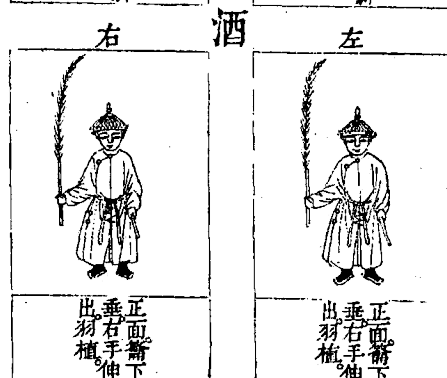 酒
左
正面籥下
垂右手伸
出羽植
右
正面籥下
垂右手伸
出羽植